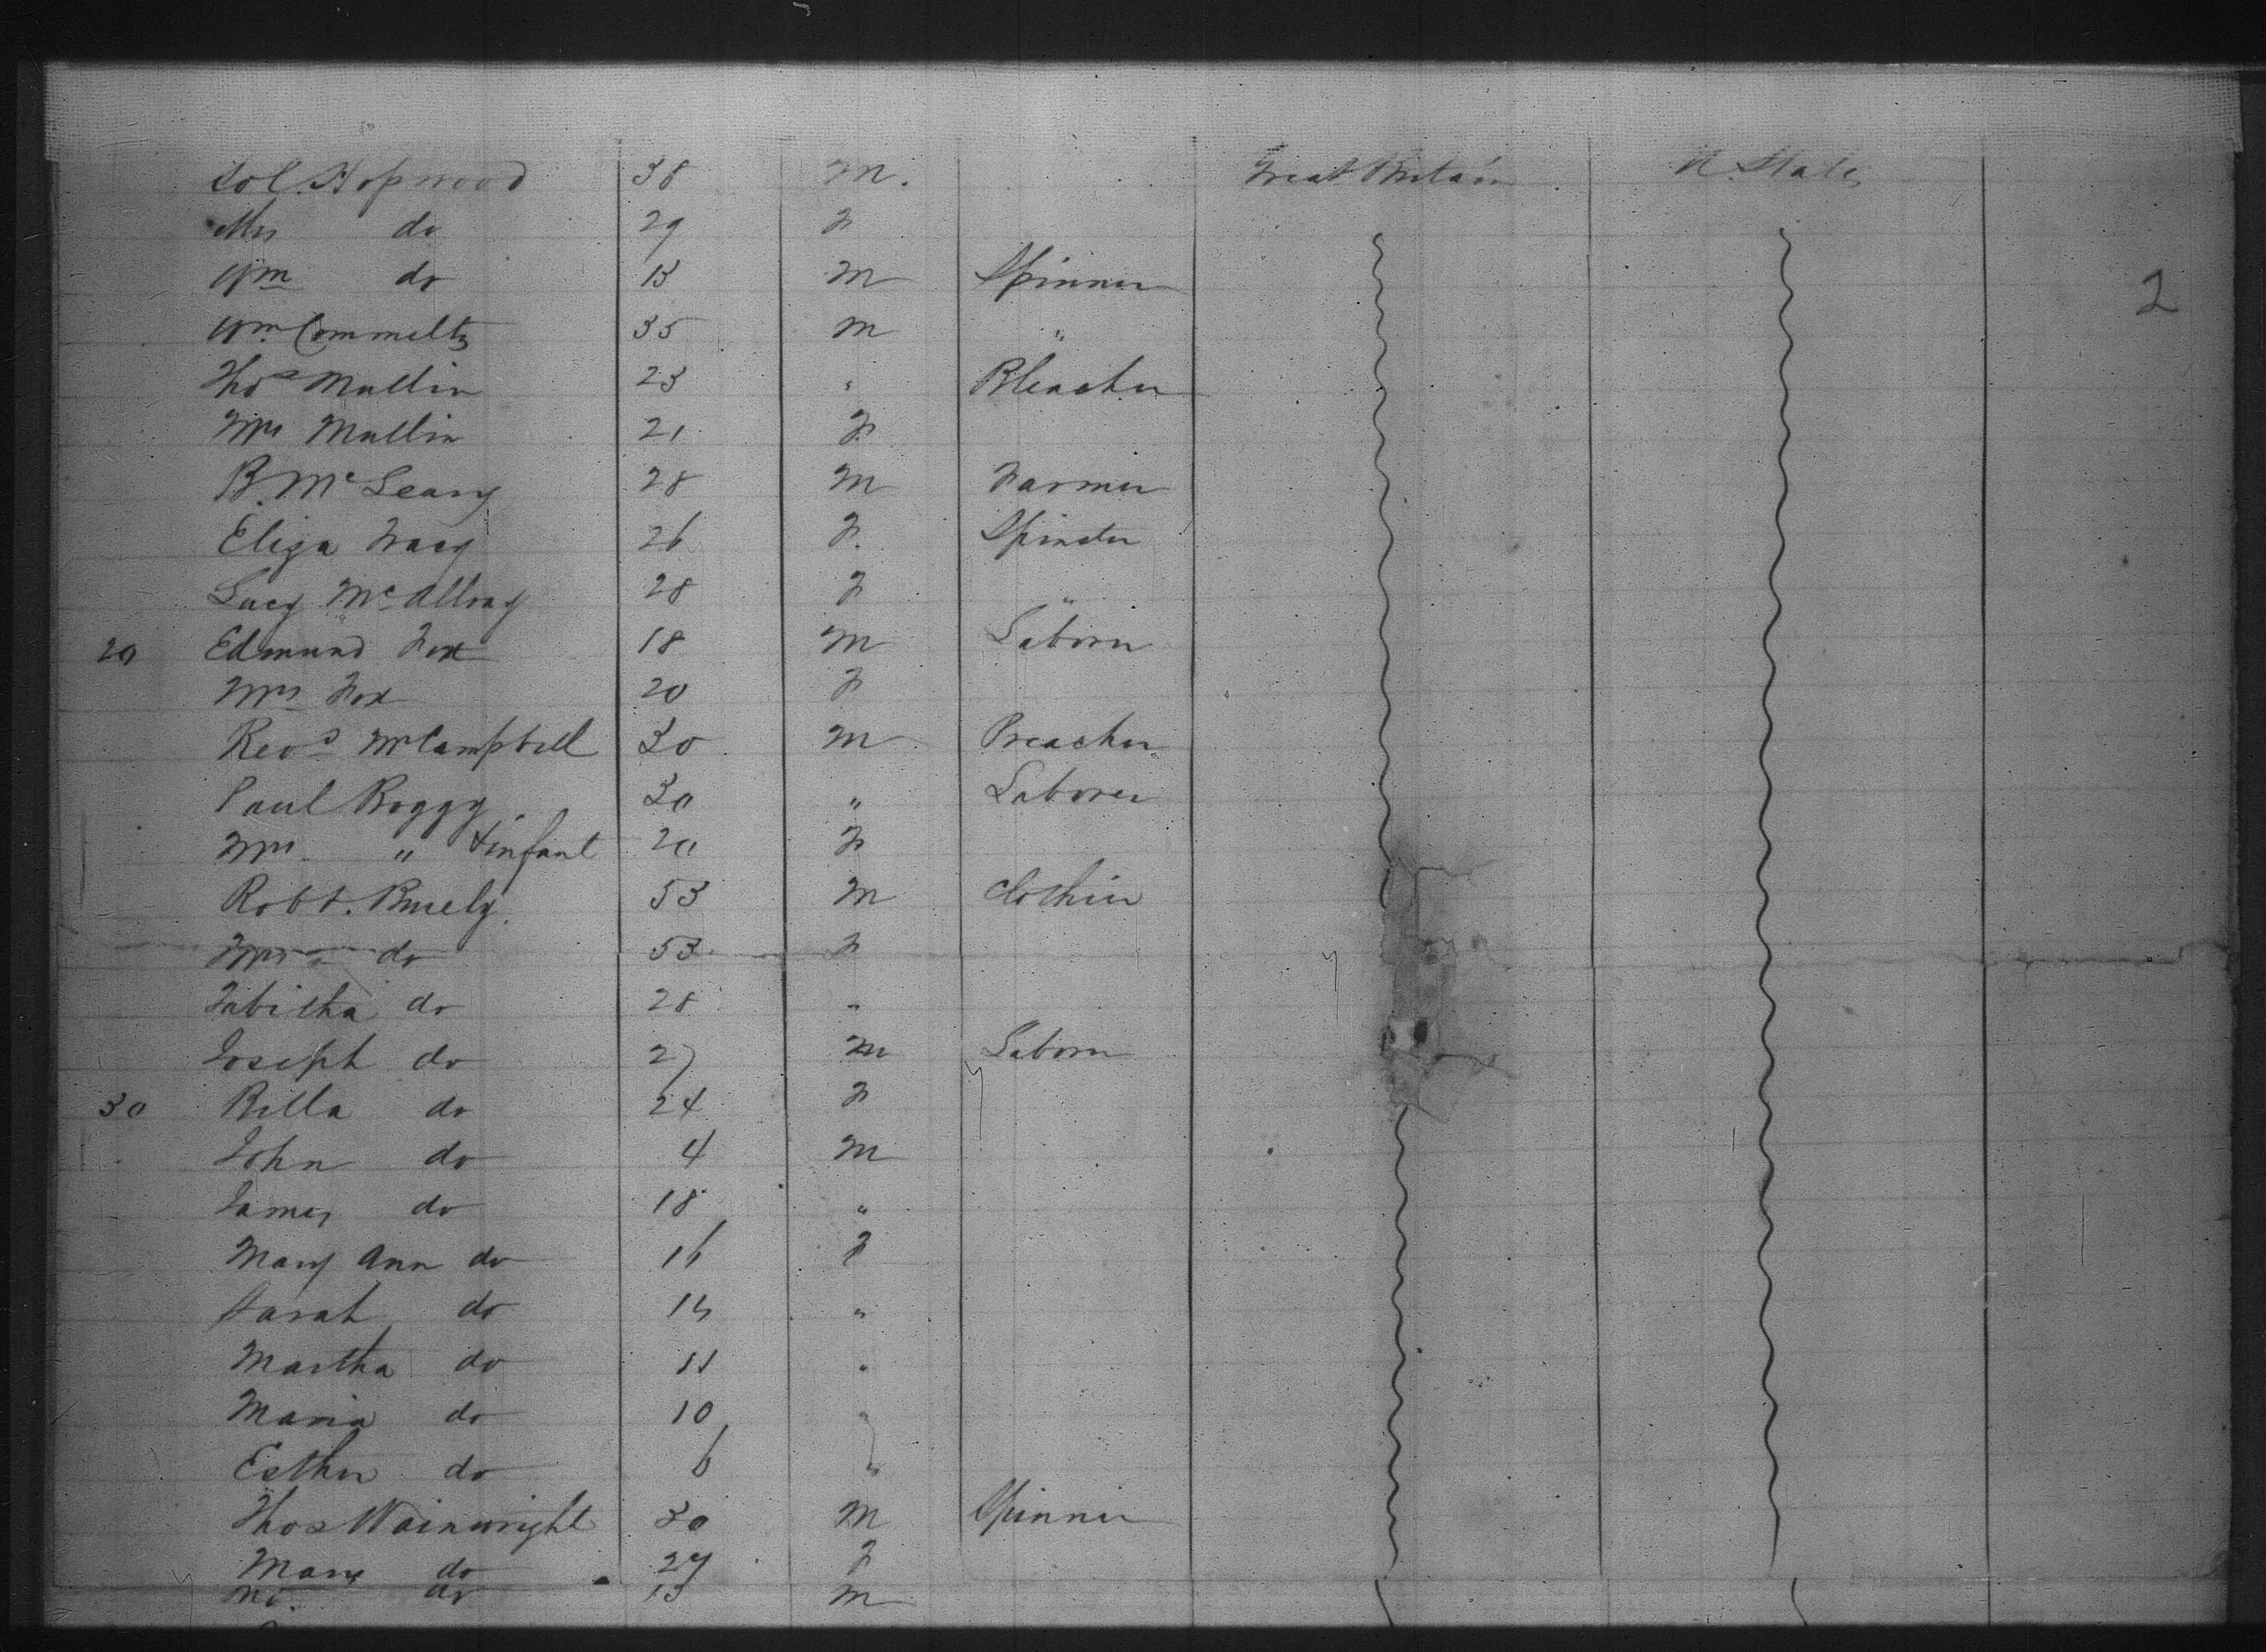 Sol. Hopwood 38 M. Great Britain U. States
Mrs do 29 F
Wm do 13 M Spinner 2
Wm 35 M "
Thos Mullin 23 " Bleacher
Mrs Mullin 21 F
B. McLeary 28 M Farmer
Eliza 26 F. Spinster
Lucy McAllroy 28 F "
20 Edmund Fox 18 M Laborer
Mrs Fox 20 F
Revd Mr Campbell 30 M Preacher
Paul Boggy 30 " Laborer
Mrs " & infant 20 F
Robt. 53 M Clothier
Mrs do 53 F
Tabitha do 28 "
Joseph do 27 M Laborer
30 Billa do 24 F
John do 4 M
James do 18 "
Mary Ann do 16 F
Sarah do "
Martha do 11 "
Maria do 10 "
Esther do 6 "
Thos Wainwright 30 M Spinner
Mary do 27 F
do 13 M